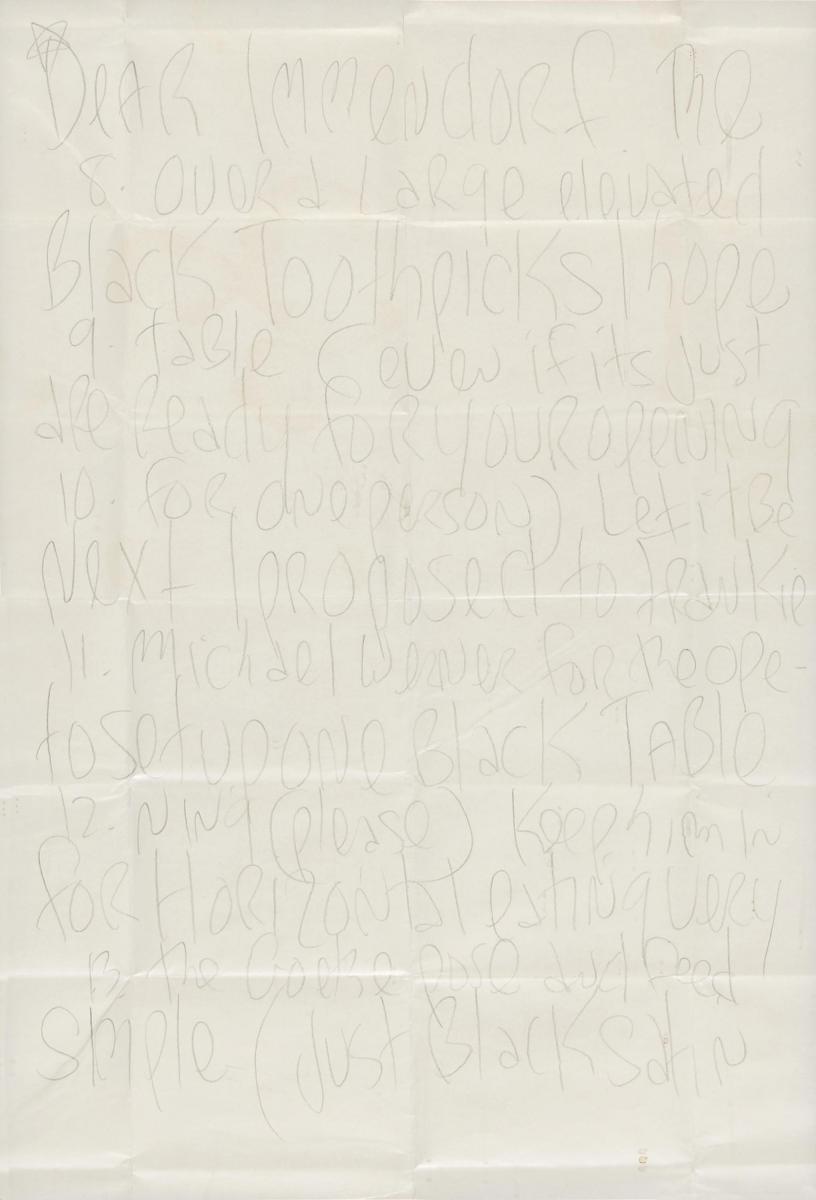 Dear Immendorf The
8. over a large elevated
Black Toothpicks I hope
9. table (even if its just
are ready for your opening
10. for one person), Let it Be
Next I proposed to Frankie
11. Michael Werner for the ope-
to set up one Black TABle
12. ning (please) Keep him in
for Horizontal eating very
13. the Goethe pose and feed
Smple (just Black satin